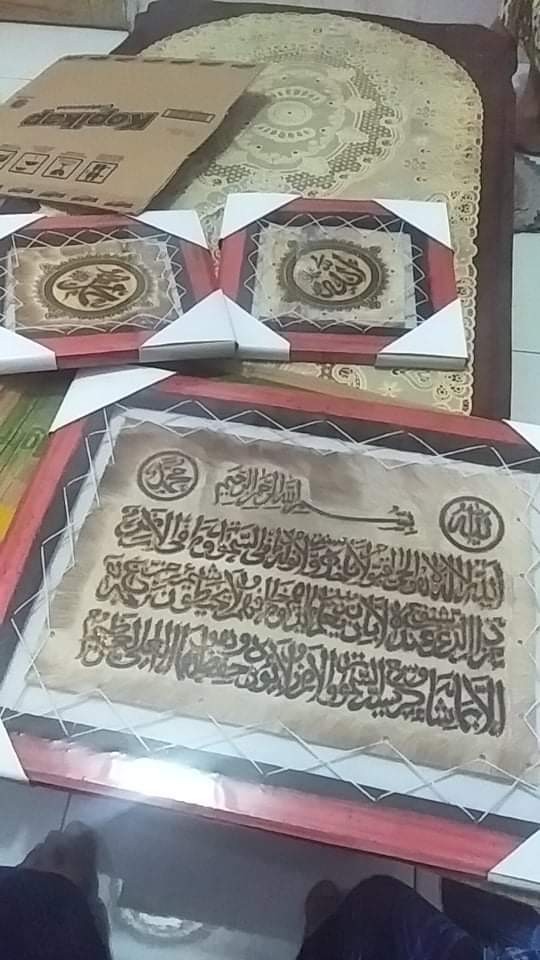 Kopikap
محمد
الله
الله
بسم الله الرحمن الرحيم
محمد
الله لا إله إلا هو الحي القيوم لا تأخذه سنة ولا نوم له ما في السموات وما في الأرض
من ذا الذي يشفع عنده إلا بإذنه يعلم ما بين أيديهم وما خلفهم ولا يحيطون بشيء من علمه
إلا بما شاء وسع كرسيه السموات والأرض ولا يئوده حفظهما وهو العلي العظيم